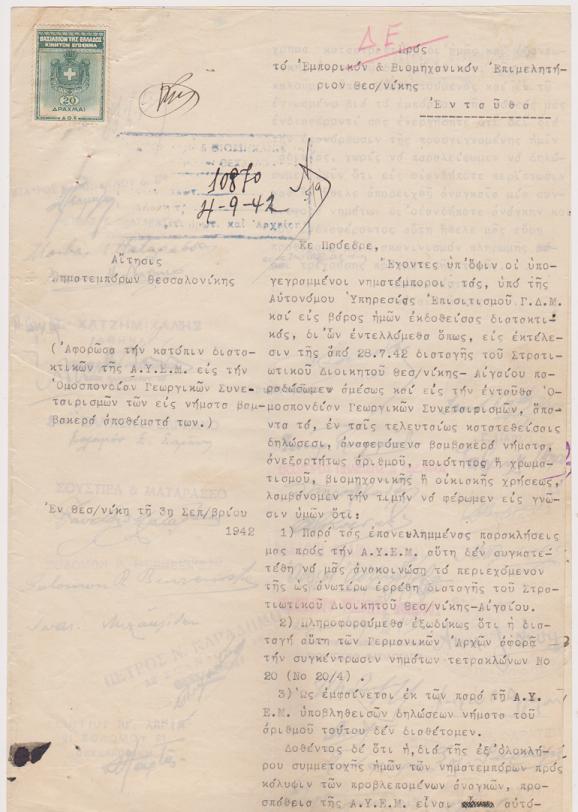 ΒΑΣΙΛΕΙΟΝ ΤΗΣ ΕΛΛΑΔΟΣ
ΚΙΝΗΤΟΝ ΕΠΙΣΗΜΑ
20
ΔΡΑΧΜΑΙ
Δ.Ε.
Πρός
τό Ἐμπορικόν & Βιομηχανικόν Ἐπιμελητή-
ριον Θεσ/νίκης
Ἐνταῦθα
10870
4-9-42
καί Ἀρχείου
Αἴτησις
Νηματεμπόρων Θεσσαλονίκης
(Ἀφορῶσα τήν κατόπιν διατα-
κτικῶν τῆς Α.Υ.Ε.Μ. εἰς τήν
Ὁμοσπονδίαν Γεωργικῶν Συνε-
ταιρισμῶν τῶν εἰς νήματα βαμ-
βακερά ἀποθέματά των.)
Ἐν Θεσ/νίκῃ τῇ 3ῃ Σεπ/βρίου
1942
Κε Πρόεδρε,
Ἔχοντες ὑπ' ὄψιν οἱ ὑπο-
γεγραμμένοι νηματέμποροι τάς, ὑπό τῆς
Αὐτονόμου Ὑπηρεσίας Ἐπισιτισμοῦ Γ.Δ.Μ.
καί εἰς βάρος ἡμῶν ἐκδοθείσας διατακτι-
κάς, δι' ὧν ἐντελλόμεθα ὅπως, εἰς ἐκτέλε-
σιν τῆς ἀπό 28.7.42 διαταγῆς τοῦ Στρατι-
ωτικοῦ Διοικητοῦ Θεσ/νίκης- Αἰγαίου πα-
ραδώσωμεν ἀμέσως καί εἰς τήν ἐνταῦθα Ὁ-
μοσπονδίαν Γεωργικῶν Συνεταιρισμῶν, ἅπα-
ντα τά, ἐν ταῖς τελευταίως κατατεθείσαις
δηλώσεσι, ἀναφερόμενα βαμβακερά νήματα,
ἀνεξαρτήτως ἀριθμοῦ, ποιότητος ἤ χρωμα-
τισμοῦ, βιομηχανικῆς ἤ οἰκιακῆς χρήσεως,
λαμβάνομεν τήν τιμήν νά φέρωμεν εἰς γνῶ-
σιν ὑμῶν ὅτι:
1) Παρά τάς ἐπανειλημμένας παρακλήσεις
μας πρός τήν Α.Υ.Ε.Μ. αὕτη δέν συγκατε-
τέθη νά μᾶς ἀνακοινώσῃ τό περιεχόμενον
τῆς ὡς ἀνωτέρω ἐρρέθη διαταγῆς τοῦ Στρα-
τιωτικοῦ Διοικητοῦ Θεσ/νίκης-Αἰγαίου.
2) Πληροφορούμεθα ἐξωδίκως ὅτι ἡ δια-
ταγή αὕτη τῶν Γερμανικῶν Ἀρχῶν ἀφορᾷ
τήν συγκέντρωσιν νημάτων τετρακλώνων Νο
20 (Νο 20/4) .
3) Ὡς ἐμφαίνεται ἐκ τῶν παρά τῇ Α.Υ.
Ε.Μ. ὑποβληθεισῶν δηλώσεων νήματα τοῦ
ἀριθμοῦ τούτου δέν διαθέτομεν.
Δοθέντος δέ ὅτι ἡ,διά τῆς ἐξ'ὁλοκλή-
ρου συμμετοχῆς ἡμῶν τῶν νηματεμπόρων πρός
κάλυψιν τῶν προβλεπομένων ἀναγκῶν, προ-
σπάθεια τῆς Α.Υ.Ε.Μ. εἶναι αὐτό-